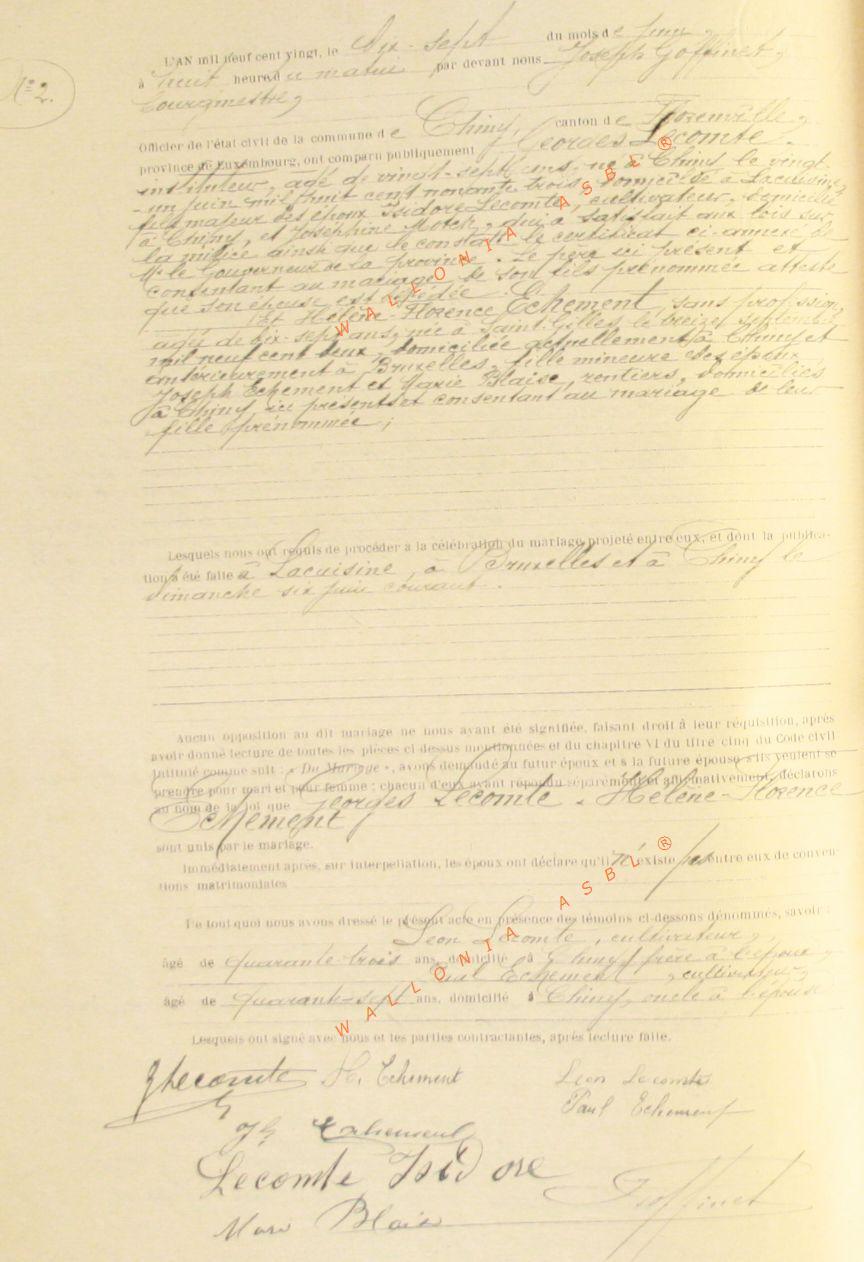 N° 2.
L'AN mil neuf cent vingt, le Dix-sept du mois de juin,
à huit heures du matin par devant nous Joseph Goffinet,
bourgmestre,
Officier de l'état civil de la commune de Chiny, canton de Florenville,
province de Luxembourg, ont comparu publiquement Georges Lecomte,
instituteur, âgé de vingt-sept ans, né à Chiny le vingt
-un juin mil huit cent nonante trois, domicilié à Lacuisine,
fils majeur des époux Isidore Lecomte, cultivateur, domicilié
à Chiny, et Joséphine, qui a satisfait aux lois sur
la milice ainsi que le constate le certificat ci-annexé de
Mr le Gouverneur de la province. Le père ici présent et
consentant au mariage de son fils prénommée atteste
que son épouse est décédée.
Et Hélène-Florence Echement, sans profession,
agée de dix-sept ans, née à Saint-Gilles le treize septembre
mil neuf cent deux, domiciliée actuellement à Chiny et
antérieurement à Bruxelles, fille mineure des époux
Joseph Echement et Marie Blaise, rentiers, domiciliés
à Chiny, ici présents et consentant au mariage de leur
fille prénommée;
Lesquels nous ont requis de procéder à la célébration du mariage projeté entre eux, et dont la publica-
tion a été faite à Lacuisine, à Bruxelles et à Chiny le
dimanche six juin courant.
Aucun opposition au dit mariage ne nous ayant été signifiée, faisant droit à leur réquisition, après
avoir donné lecture de toutes les pièces ci dessus mentionnées et du chapitre VI du titre cinq du Code civil
intitulé comme suit : « Du Mariage », avons demandé au futur époux et à la future épouse s'ils veulent se
prendre pour mari et pour femme ; chacun d'eux ayant répondu séparément et affirmativement, déclarons
au nom de la loi que Georges Lecomte. Hélène-Florence
Echement
sont unis par le mariage.
Immédiatement après, sur interpellation, les époux ont déclaré qu'il n'existe pas entre eux de conven-
tions matrimoniales
De tout quoi nous avons dressé le présent acte en présence des témoins ci-dessous dénommés, savoir :
Léon Lecomte, cultivateur,
âgé de quarante-trois ans, domicilié à Chiny, frère à l'époux,
Paul Echement, cultivateur,
âgé de quarante-sept ans, domicilié à Chiny, oncle à l'épouse
Lesquels ont signé avec nous et les parties contractantes, après lecture faite.
GLecomte H. Echement Leon Lecomte
Paul Echement
Jh Echement
Lecomte Isidore
Goffinet
Blaise
WALLONIA ASBL ®
WALLONIA ASBL ®